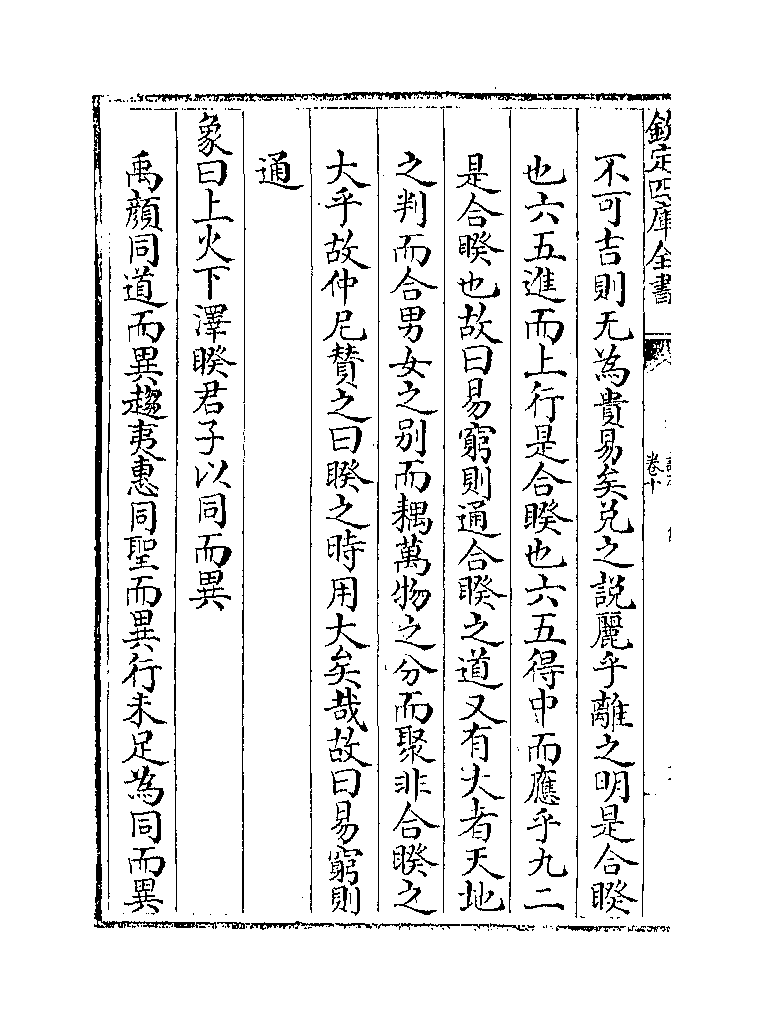 欽定四庫全書
卷十
不可吉則无為貴易矣兌之說麗乎離之明是合睽
也六五進而上行是合睽也六五得中而應乎九二
是合睽也故曰易窮則通合睽之道又有大者天地
之判而合男女之别而耦萬物之分而聚非合睽之
大乎故仲尼賛之曰睽之時用大矣哉故曰易窮則
通
象曰上火下澤睽君子以同而異
禹顔同道而異趨夷惠同聖而異行未足為同而異